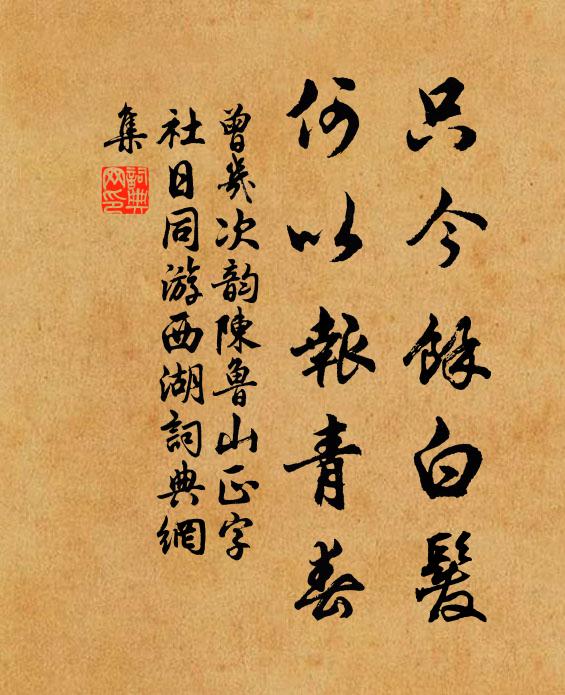 只今餘白髮
何以報青春
曾幾次韵陳魯山正字
社日同游西湖詞典網
集
詞典
网印